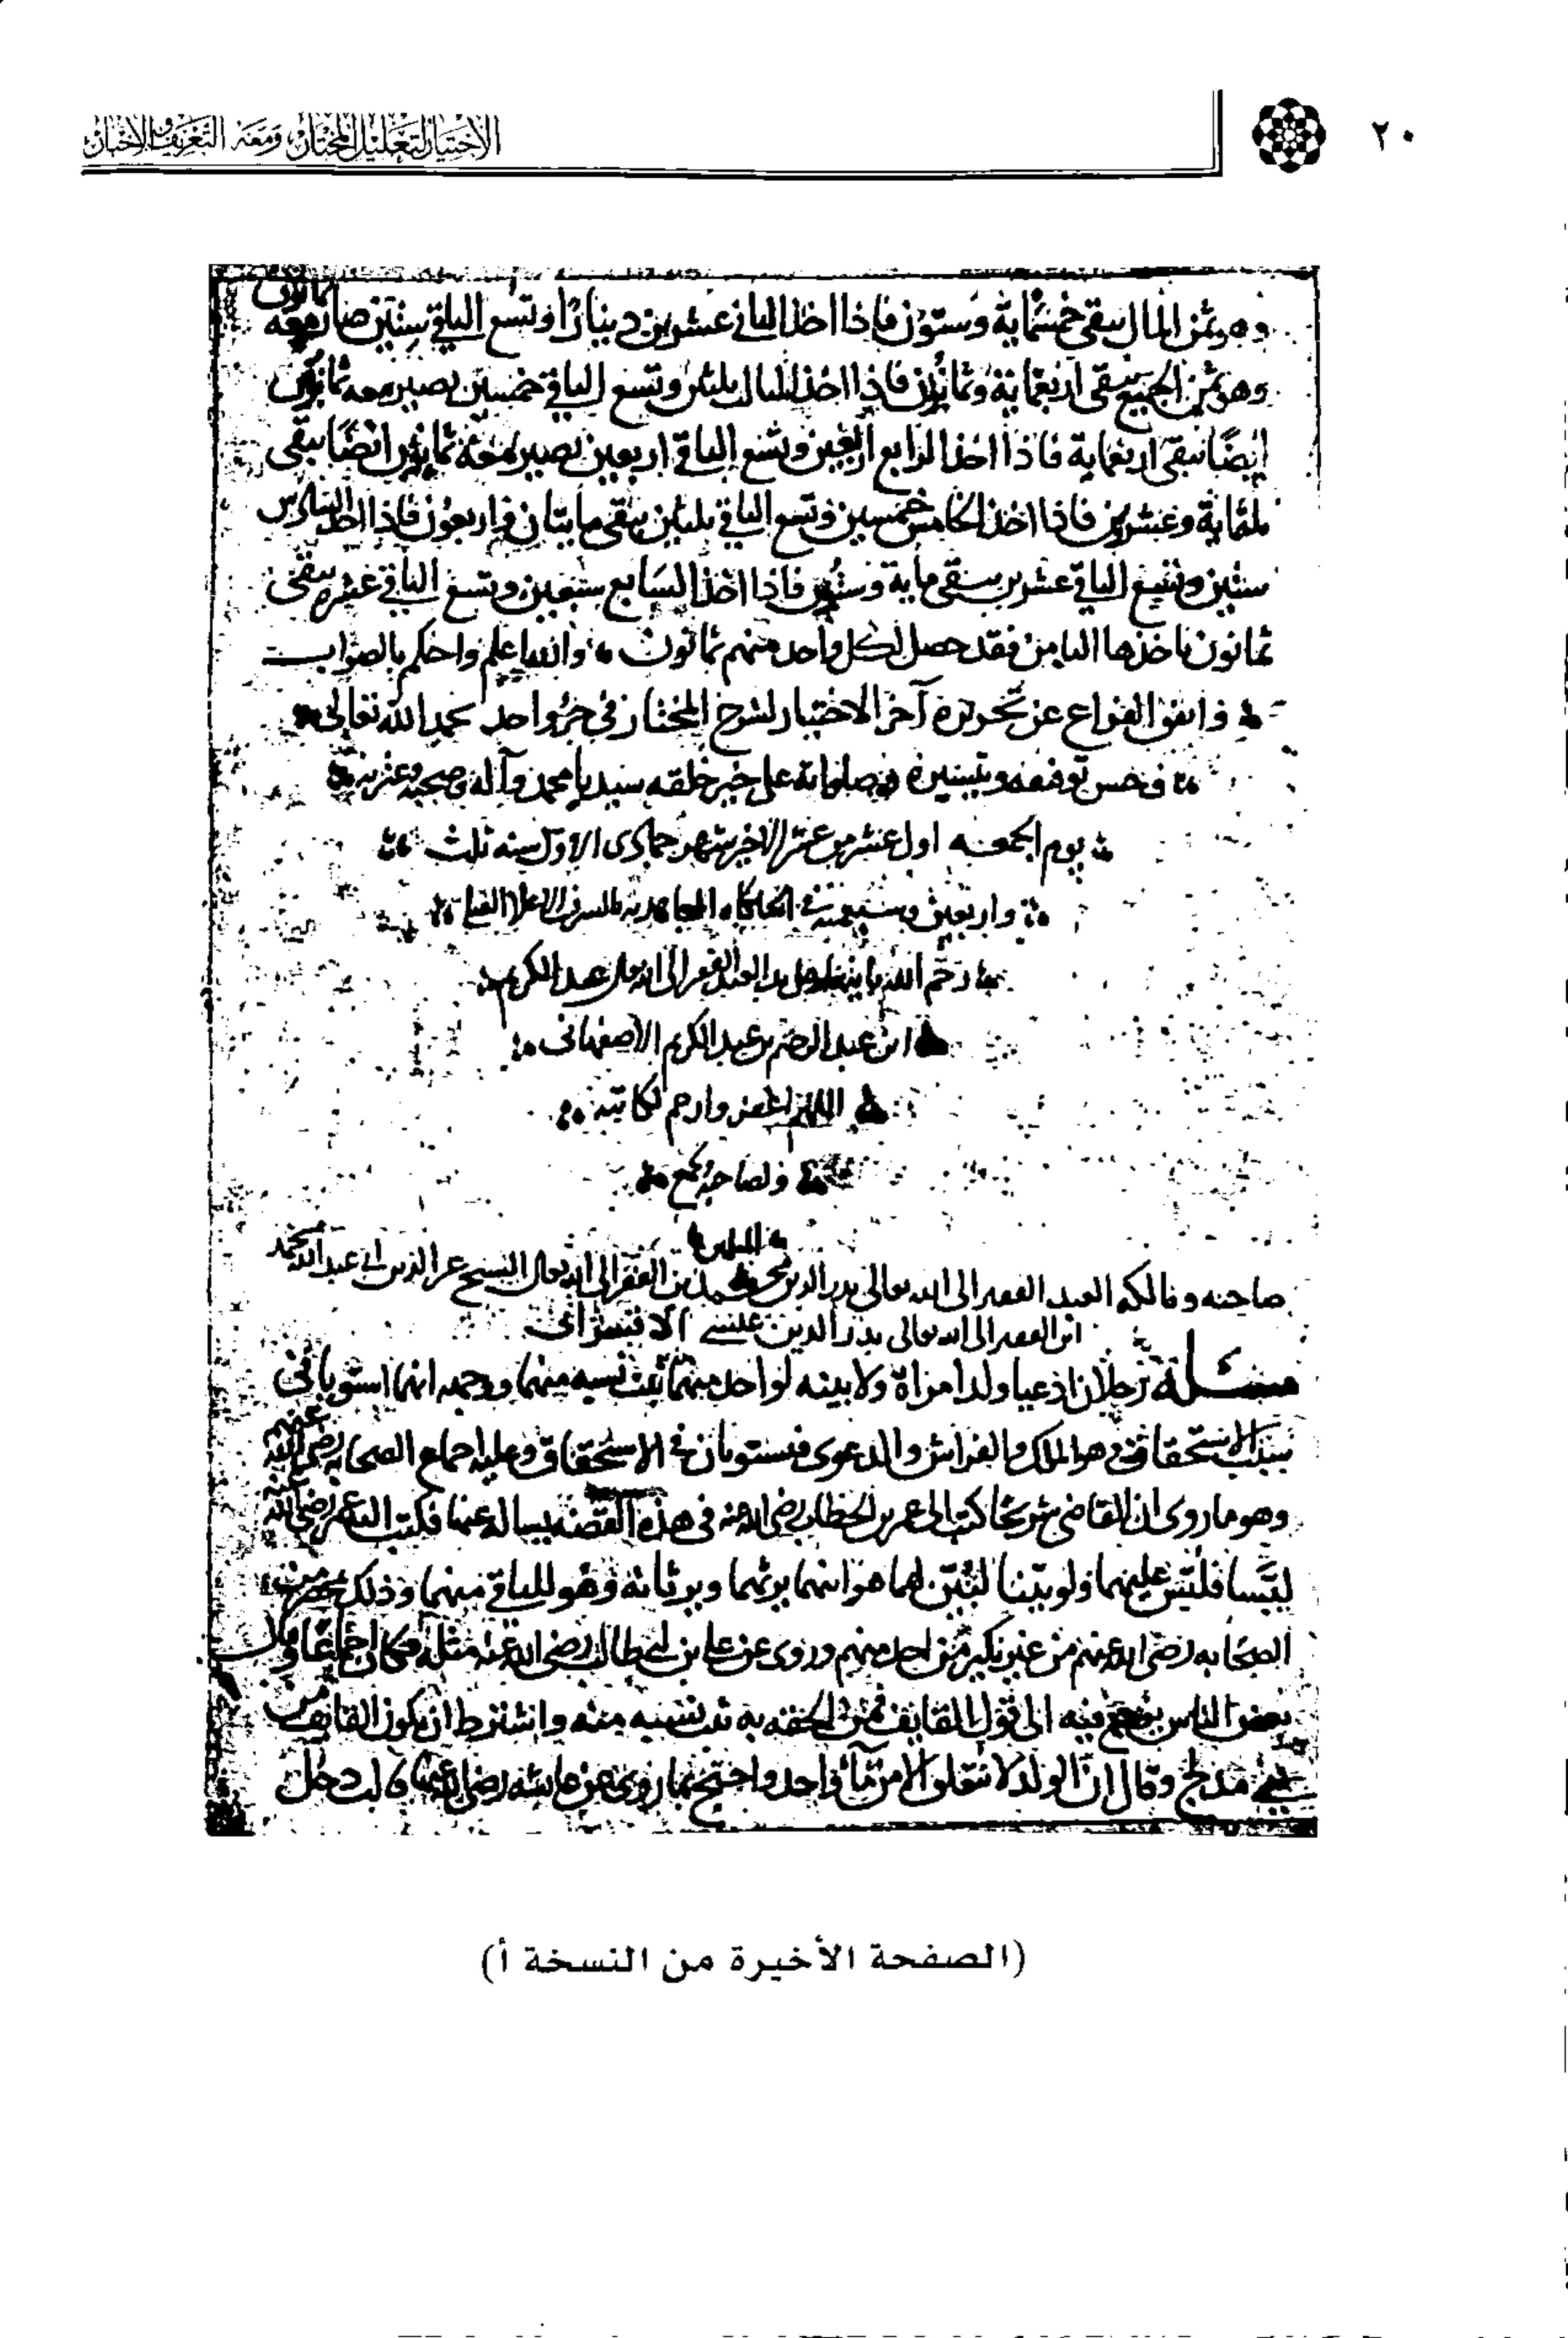 ٢٠
الاختيار لتعليل المختار ومعه التعريف والاخبار
وهو ثمن المال يبقى خمسماية وستون فاذا اخذ الثانى عشرين دينارا وتسع الباقي ستين صار معه ثمانون
وهو ثمن الجميع يبقى اربعماية وثمانون فاذا اخذ الثالث ثلثين وتسع الباقي خمسين يصير معه ثمانون
ايضا يبقى اربعماية فاذا اخذ الرابع اربعين وتسع الباقي اربعين يصير معه ثمانون ايضا يبقى
ثلثماية وعشرون فاذا اخذ الخامس خمسين وتسع الباقي ثلثين يبقى مايتان واربعون فاذا اخذ السادس
ستين وتسع الباقي عشرين يبقى ماية وستون فاذا اخذ السابع سبعين وتسع الباقي عشرة يبقى
ثمانون ياخذها الثامن فقد حصل لكل واحد منهم ثمانون والله اعلم واحكم بالصواب
وافق الفراغ عن تحريره آخر الاختيار لشرح المختار في جزو واحد بحمد الله تعالى
وحسن توفيقه وتيسيره وصلواته على خير خلقه سيدنا محمد وآله وصحبه وعترته
يوم الجمعه اول عشر من عشر الاخر شهر جمادى الاول سنه ثلث
واربعين وسبعمئة في الخانكاه المجاهديه بالشرف الاعلا القبلى
رحم الله بانيها على يد العبد الفقير الى الله تعالى عبد الكريم
ابن عبد الرحيم بن عبد الكريم الاصفهانى
اللهم اغفر وارحم لكاتبه
ولصاحبه
صاحبه ومالكه العبد الفقير الى الله تعالى بدر الدين محمد بن الفقير الى الله تعالى الشيخ عز الدين ابى عبد الله محمد
ابن الفقير الى الله تعالى بدر الدين عيسى الاقسرائى
مسئلة رجلان ادعيا ولد امراة ولا بينه لواحد منهما ثبت نسبه منهما ووجهه انهما استويا فى
سبب الاستحقاق وهو الملك والفراش والدعوى فيستويان في الاستحقاق وعليه اجماع الصحابه رضى الله عنهم
وهو ما روى ان القاضى شريحا كتب الى عمر بن الخطاب رضى الله عنه فى هذه القضيه يساله عنها فكتب اليه عمر رضى الله عنه
لبسا فلبس عليهما ولو بينا لبين لهما هو ابنهما يرثهما ويرثانه وهو للباقي منهما وذلك بمحضر من
الصحابه رضى الله عنهم من غير نكير من احد منهم وروى عن علي بن ابى طالب رضى الله عنه مثله فكان اجماعا وقال
بعض الناس يرجع فيه الى قول القايف فمن الحقه به ثبت نسبه منه واشترط ان يكون القايف من
بني مدلج وقال ان الولد لا ينخلق الا من مآء واحد واحتج بما روى عن عايشه رضى الله عنها قالت دخل
(الصفحة الأخيرة من النسخة أ)